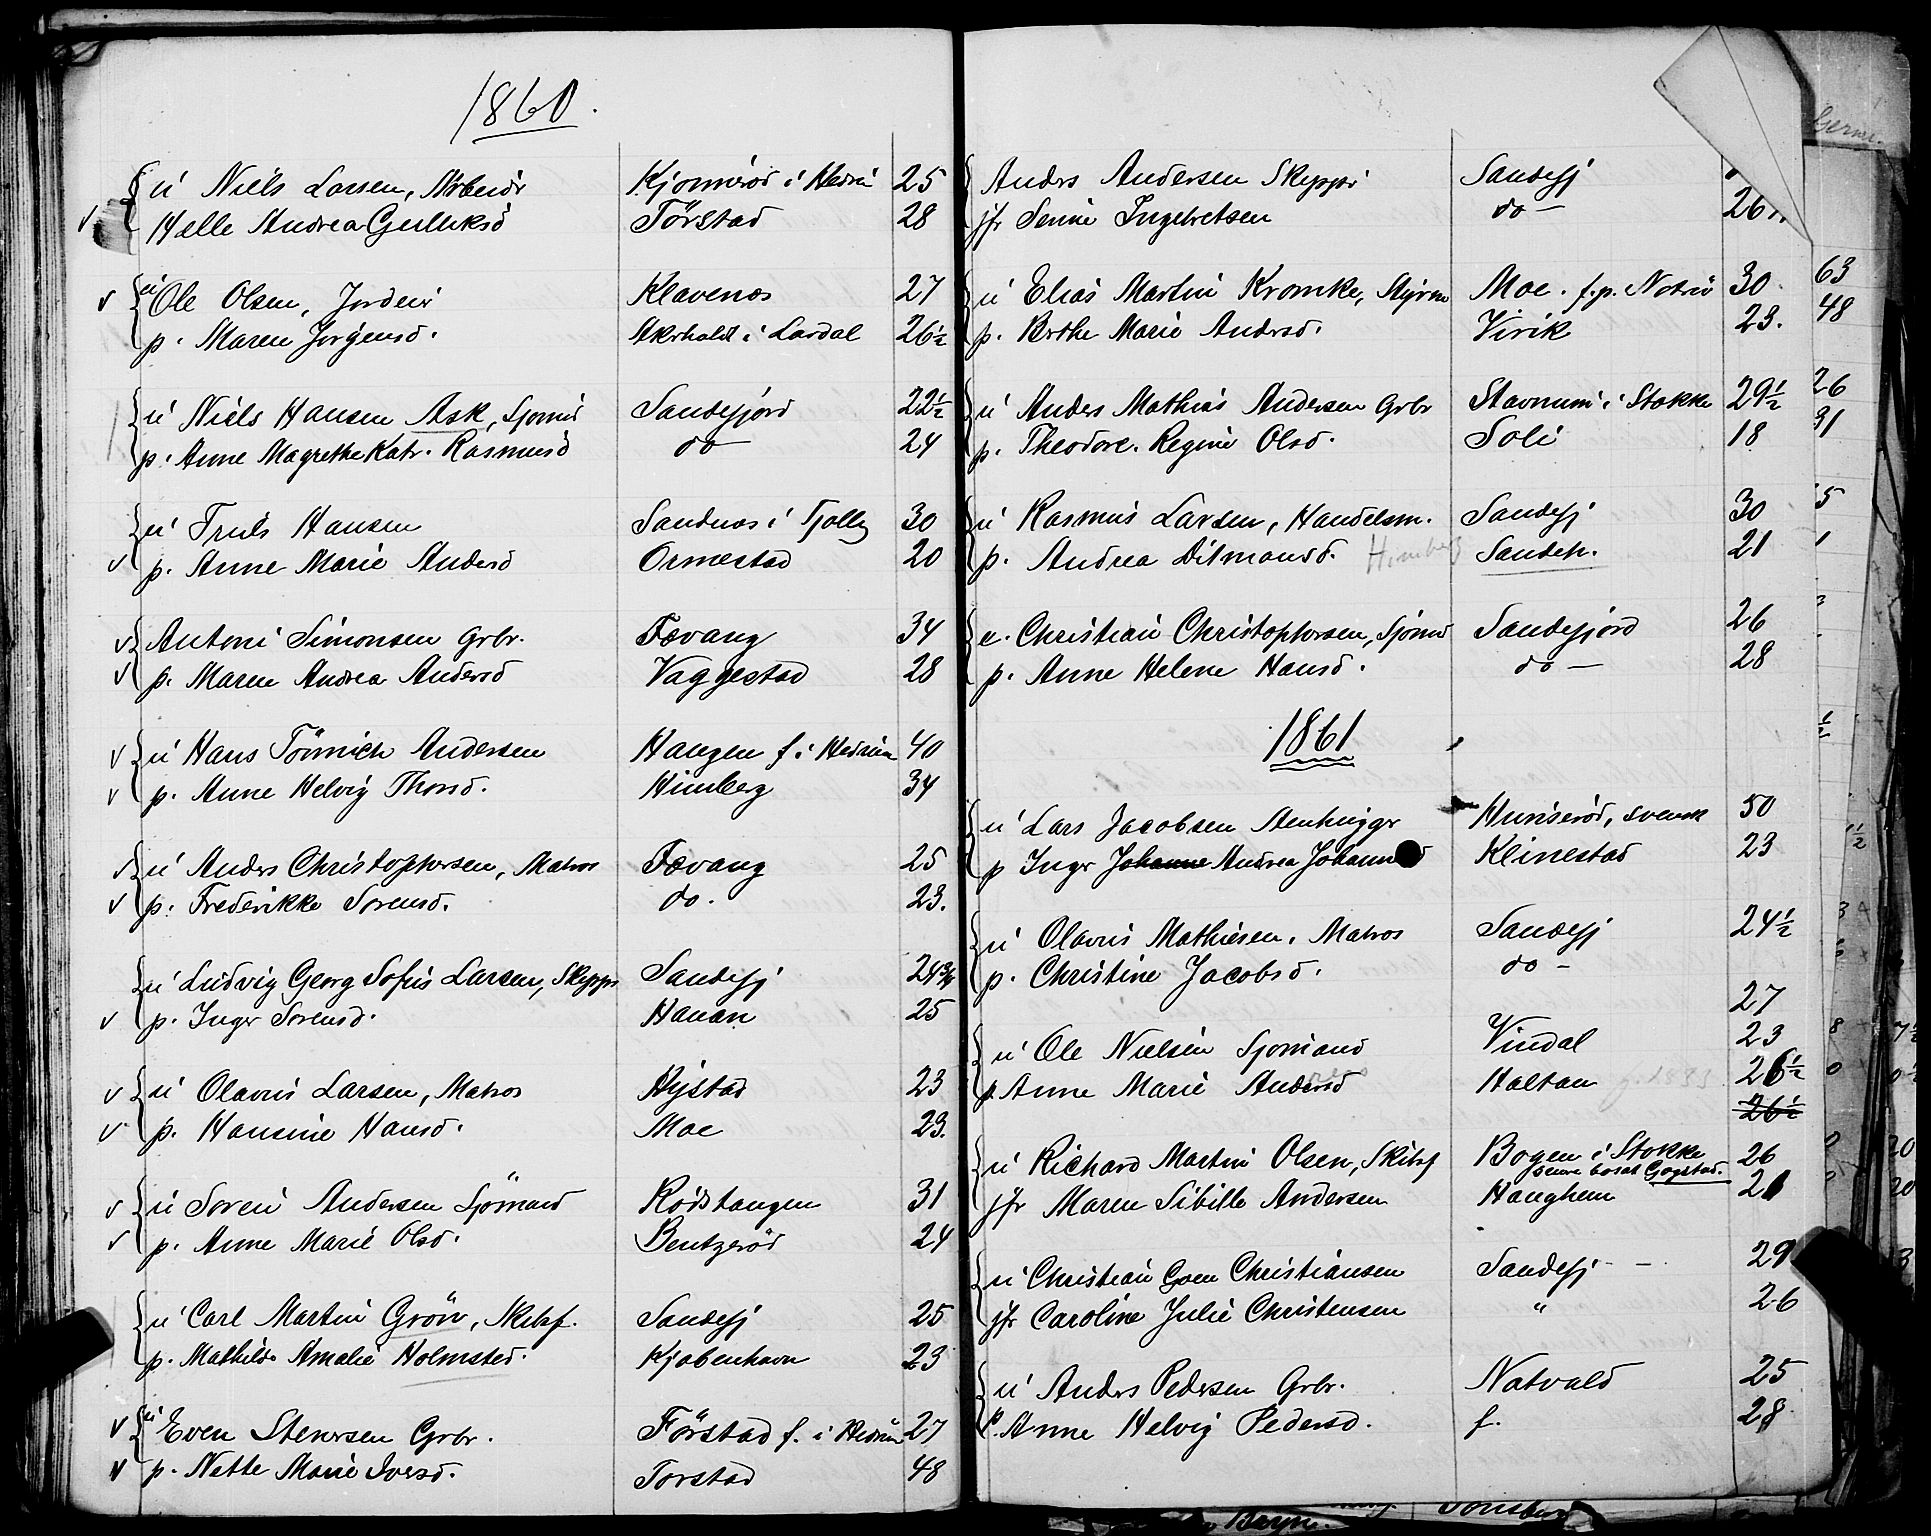 1860.
u Niels Larsen, Arbeidr Kjønnerød i Hedru 25
Helle Andrea Gulliksd Törstad 28
u Ole Olsen, Jordeir Klavenæs 27
p. Maren Jørgensd. Akerholdt i Lardal 26½
u Niels Hansen Ask, Sjømd Sandefjord 22½
p. Anne Magrethe Katr. Rasmusd do 24
u Truls Hansen Sandnæs i Tjølling 30
p. Anne Marie Andersd Ormestad 20
Antoni Simonsen Grbr. Fævang 34
p. Maren Andrea Andersd Vaggestad 28
u Hans Tönnich Andersen Haugen f. i Hedrum 40
p. Anne Helvig Thorsd. Himberg 34
u Anders Christophersen, Matros Fævang 25
p. Frederikke Sørensd. do. 23.
u Ludvig Georg Sofus Larsen, Skippr Sandefj 24¾
p. Inger Sørensd. Hauan 25
u Olavus Larsen, Matros Nystad 23
p. Hansine Hansd. Moe 23.
u Soren Andersen Sjömand Rödstangen 31
p. Anne Marie Olsd. Bentzeröd 24
u Carl Martin Grön, Skibsf. Sandefj 25
p. Mathilde Amalie Holmsted. Kjøbenhavn 23
u Even Stenersen Grbr. Förstad f. i Hedrum 27
p. Nette Marie Iversd. Torstad 48
Anders Andersen Skippr Sandefj
jfr Senni Ingebretsen do — 26
u Elias Martin Kromke, Styrm Moe. f.p. Notrö 30
p. Berthe Marie Andersd. Virik 23.
u Anders Mathias Andersen Grbr Stavnum i Stokke 29½
p. Theodore Regine Olsd. Soli 18
u Rasmus Larsen, Handelsm. Sandefj 30
p. Andrea Ditmansd. Himberg Sandeh. 21
e. Christian Christophersen, Sjömd Sandefjord 26
p. Anne Helene Hansd. do — 28
1861
u Lars Jacobsen Stenhuggr Hunserød, svensk 50
p Inger Johanne Andrea Johannsd Klinestad 23
u Olavus Mathisen, Matros Sandefj 24½
p. Christine Jacobsd. do — 27
u Ole Nielsen Sjomand Vindal 23
p. Anne Marie Andersd Haltan g. 1833 26½
26½
u Richard Martin Olsen, Skibsf Bogen i Stokke 26
senre bosat Gogstad.
jfr Maren Sibille Andersen Haughem 21
u Christian Goen Christiansen Sandefj 29
jfr Caroline Julie Christensen " 26
u Anders Pedersen Grbr. Natvald 25
p. Anne Helvig Pedersd. f. 28
63
48
26
31